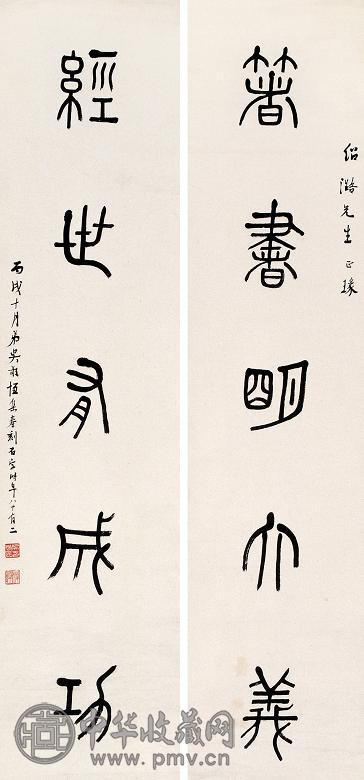 著書明大義
紹潛先生正球
經世有成功
丙戌十月弟吳敬恆集秦刻石字時年八十有二
中华收藏网
www.pmv.cn